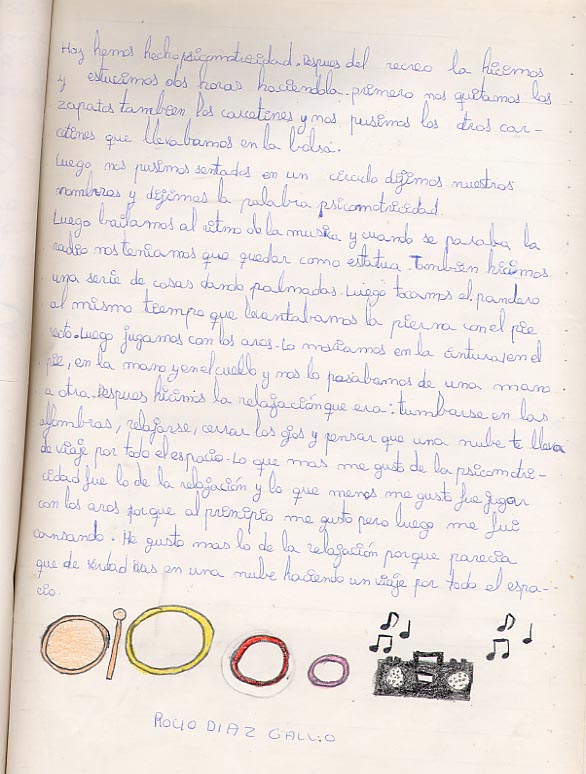 Hoy hemos hecho psicomotricidad. Despues del recreo la hicimos
y estuvimos dos horas haciendola. primero nos quitamos los
zapatos tambien los calcetines y nos pusimos los otros cal-
cetines que llevabamos en la bolsa.
Luego nos pusimos sentados en un circulo dijimos nuestros
nombres y dijimos la palabra psicomotricidad.
Luego bailamos al ritmo de la musica y cuando se paraba la
radio nos teniamos que quedar como estatua. Tambien hicimos
una serie de cosas dando palmadas. Luego tocamos el pandero
al mismo tiempo que levantabamos la pierna con el pie
recto. Luego jugamos con los aros. Lo moviamos en la cintura, en el
pie, en la mano y en el cuello y nos lo pasabamos de una mano
a otra. Despues hicimos la relajación que era: tumbarse en las
alfombras, relajarse, cerrar los ojos y pensar que una nube te lleva
de viaje por todo el espacio. Lo que mas me gusto de la psicomotri-
cidad fue lo de la relajación y lo que menos me gusto fue jugar
con los aros porque al principio me gusto pero luego me fui
cansando. Me gusto mas lo de la relajación porque parecia
que de verdad ivas en una nube haciendo un viaje por todo el espa-
cio.
ROCIO DIAZ GALLO